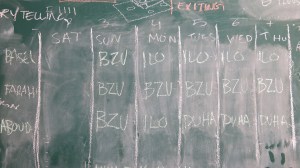 RYTELLING !!!!
EXITING!
3 4 5 6 7
SAT SUN MON TUES WED THU
BASEL BZU ILO ILO ILO ILO
FARAH BZU BZU BZU BZU BZU
ABOUD BZU ILO DUHA DUHA DUHA